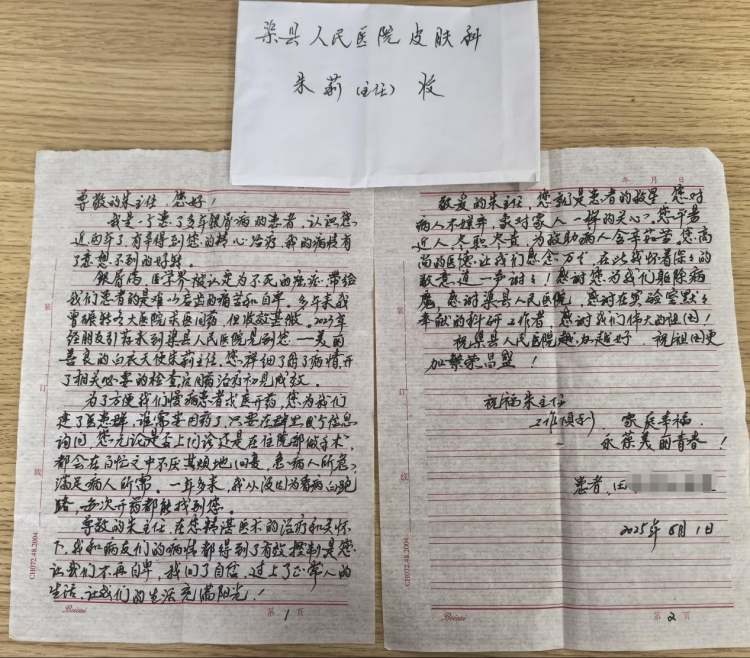 渠县人民医院皮肤科
朱莉(主任) 收
尊敬的朱主任,您好!
我是一个患了多年银屑病的患者,认识您
近两年了,有幸得到您的精心治疗,我的病情有
了意想不到的好转。
银屑病,医学界被认定为不死的癌症,带给
我们患者的是难以启齿的痛苦和自卑。多年来我
曾辗转各大医院求医问药,但收效甚微。2023年
经朋友引荐来到渠县人民医院见到您—美丽
善良的白衣天使朱莉主任,您详细了解了病情,开
了相关必要的检查,应用药治疗初见成效。
为了方便我们慢病患者求医开药,您为我们
建了医患群,谁需要用药了,只要在群里发个信息
询问,您无论是在上门诊还是在住院部做手术,
都会在百忙之中不厌其烦地回复,急病人所急,
满足病人所需。一年多来,我从没因为看病白跑
路,每次开药都能找到您。
尊敬的朱主任,在您精湛医术的治疗和关怀
下,我和病友们的病情都得到了有效控制,是您
让我们不再自卑,找回了自信,过上了正常人的
生活,让我们的生活充满阳光!
CH072.48.2004
装
订
线
Beicai
第 1 页
年 月 日
敬爱的朱主任,您就是患者的救星,您对
病人不嫌弃,象对家人一样的关心,您平易
近人,尽职尽责,为救助病人含辛茹苦,您高
尚的医德,让我们感念万分,在此我怀着深深的
敬意,道一声谢谢!感谢您为我们驱除病
魔,感谢渠县人民医院,感谢在实验室默默
奉献的科研工作者,感谢我们伟大的祖国!
祝渠县人民医院越办越好,祝祖国更
加繁荣昌盛!
祝福朱主任
工作顺利,家庭幸福,
永葆美丽青春!
患者:田
2025年6月1日
CH072.48.2004
装
订
线
Beicai
第 2 页